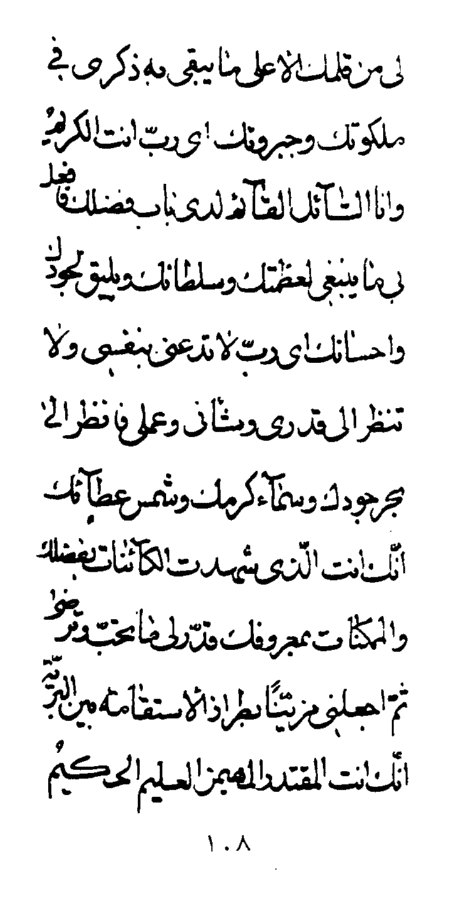 لی من قلمك الاعلی ما یبقی به ذکری فی
ملکوتك و جبروتك ای ربّ انت الکریم
و انا السّآئل القآئم لدی باب فضلك فافعل
بی ما ینبغی لعظمتك و سلطانك و یلیق لجودك
و احسانك ای ربّ لا تدعنی بنفسی و لا
تنظر الی قدری و شأنی و عملی فانظر الی
بحر جودك و سمآء کرمك و شمس عطآئك
انّك انت الّذی شهدت الکآئنات بفضلك
و الممکنات بمعروفك قدّر لی ما تحبّ و ترضی
ثمّ اجعلنی مزیّنًا بطراز الاستقامة بین البریّة
انّك انت المقتدر المهیمن العلیم الحکیم
١٠٨